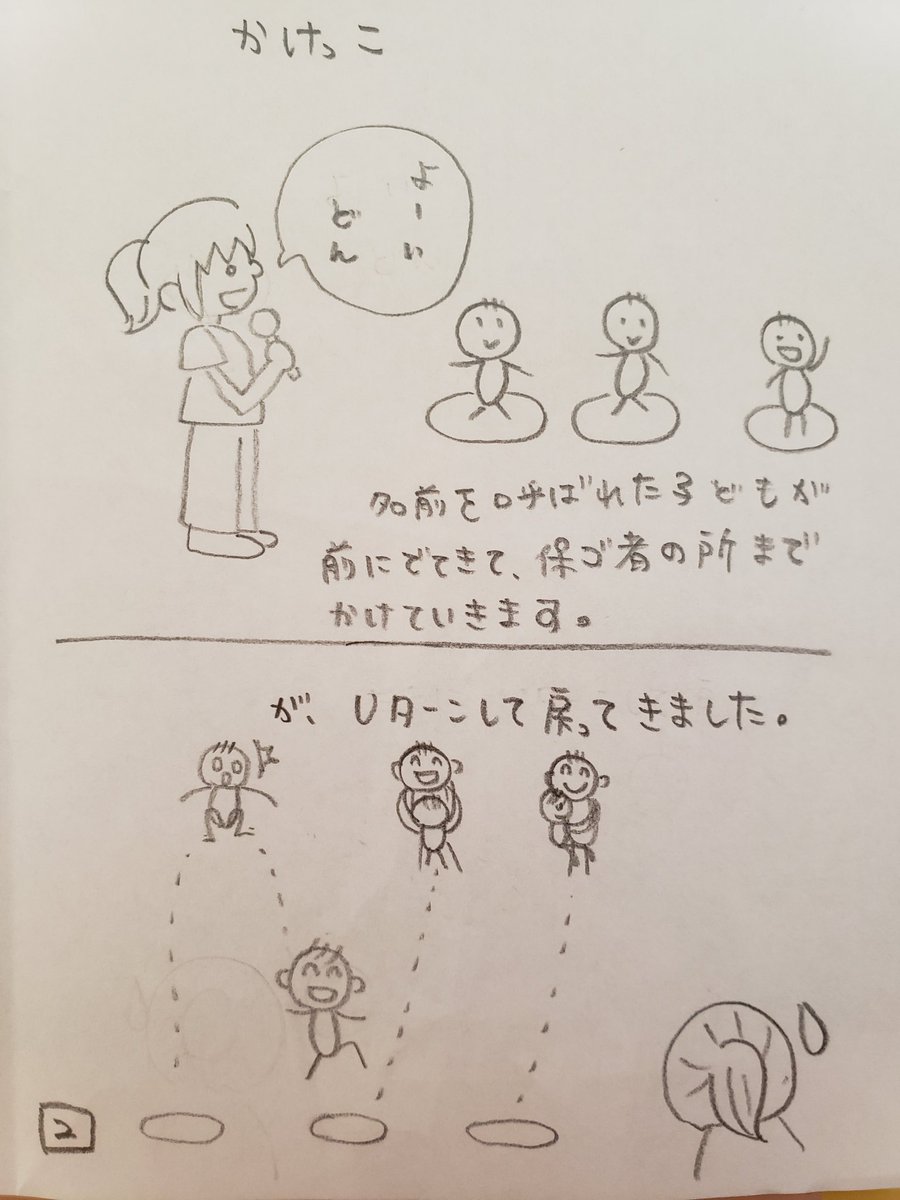 かけっこ
よーい
どん
名前を呼ばれた子どもが
前にでてきて、保ゴ者の所まで
かけていきます。
が、Uターンして戻ってきました。
2